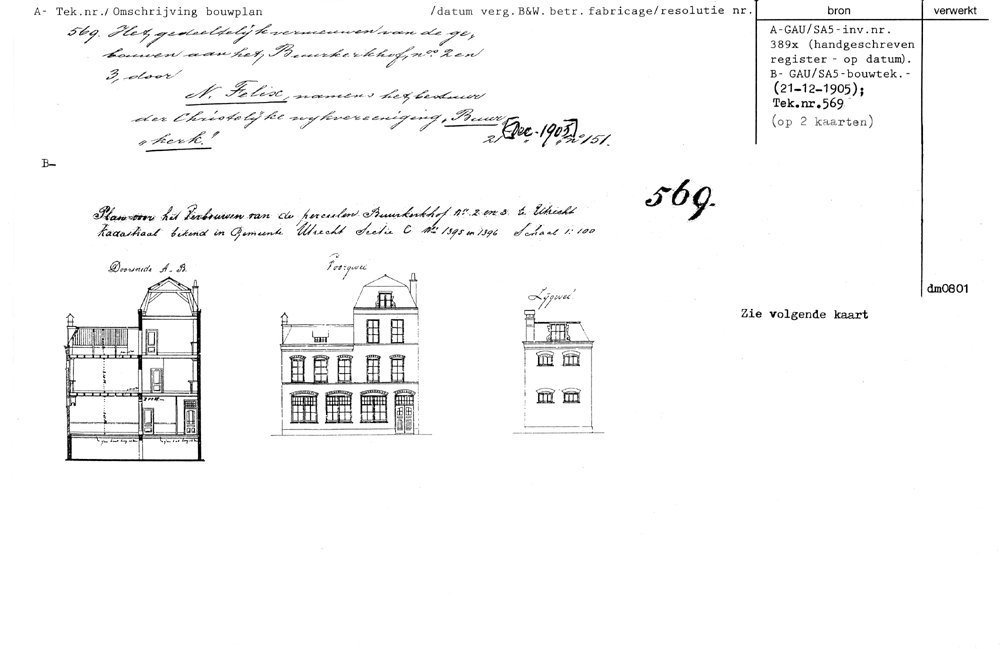 A- Tek.nr./ Omschrijving bouwplan /datum verg.B&W. betr. fabricage/resolutie nr.
bron
verwerkt
569. Het, gedeeltelijk vernieuwen van de ge,
bouwen aan het, Buurkerkhof, nos. 2 en
3, door
N. Felix, namens het, bestuur
der Christelijke vereeniging, Buur
kerk!
21 [Dec. 1905] no 151.
A-GAU/SA5-inv.nr.
389x (handgeschreven
register - op datum).
B- GAU/SA5-bouwtek.-
(21-12-1905);
Tek.nr.569
(op 2 kaarten)
B-
569.
Plan voor het Verbouwen van de perceelen Buurkerkhof No. 2 en 3. te Utrecht
Kadastraal bekend in Gemeente Utrecht Sectie C Nos 1395 en 1396 Schaal 1:100
Doorsnede A-B.
Voorgevel
Zijgevel
dm0801
Zie volgende kaart